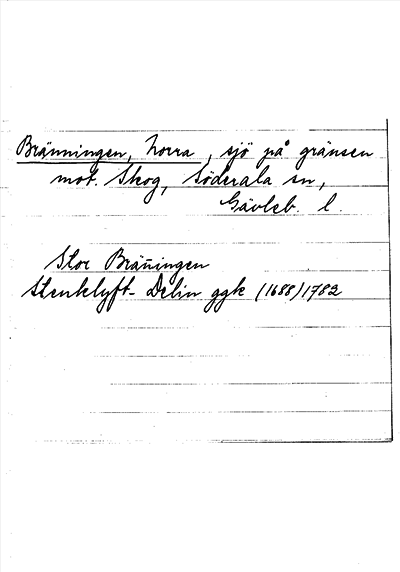 Bränningen, Norra, sjö på gränsen
mot. Skog, Söderala sn,
Gävleb. l
Stor Brän̄ingen
Stenklyft- Delin ggk (1688) 1782